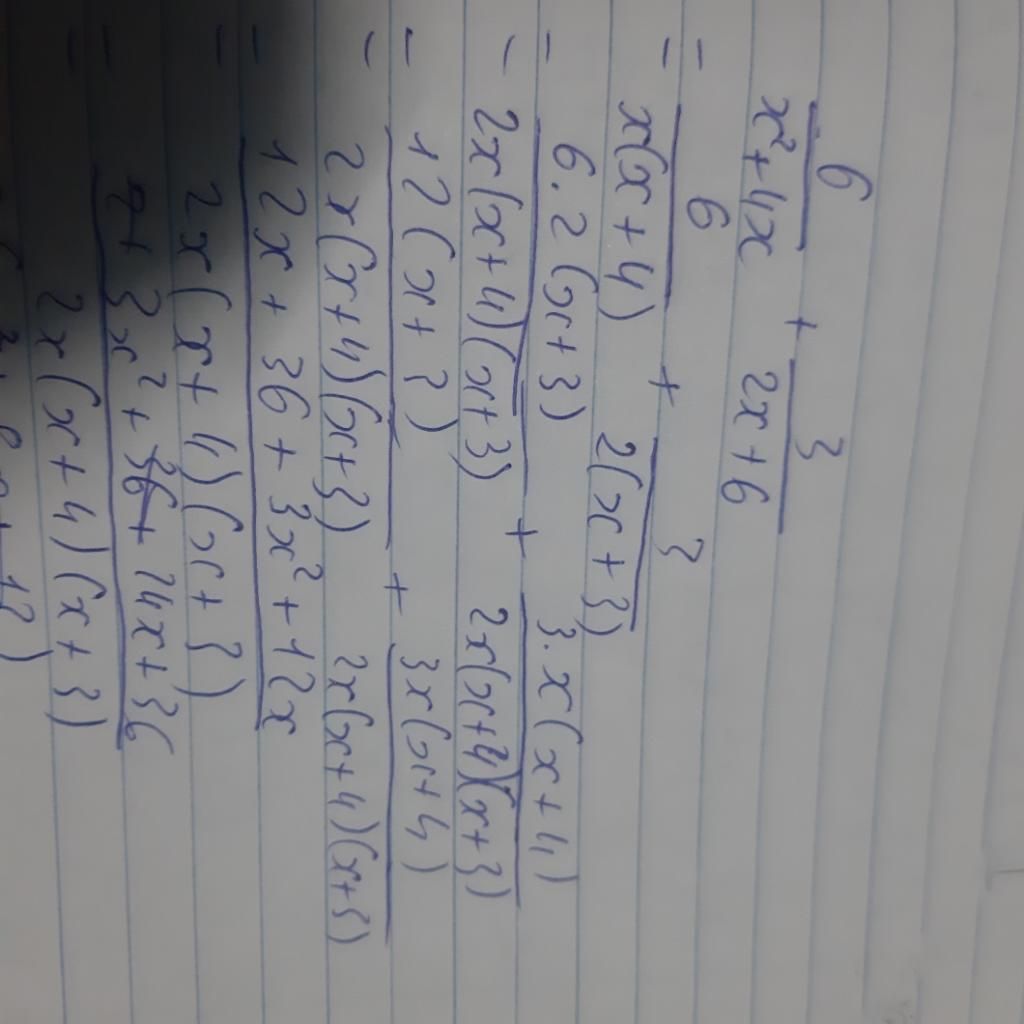 6/(x²+4x) + 3/(2x+6)
= 6/(x(x+4)) + 3/(2(x+3))
= 6.2(x+3)/(2x(x+4)(x+3)) + 3.x(x+4)/(2x(x+4)(x+3))
= 12(x+3)/(2x(x+4)(x+3)) + 3x(x+4)/(2x(x+4)(x+3))
= (12x+36+3x²+12x)/(2x(x+4)(x+3))
= (3x²+24x+36)/(2x(x+4)(x+3))